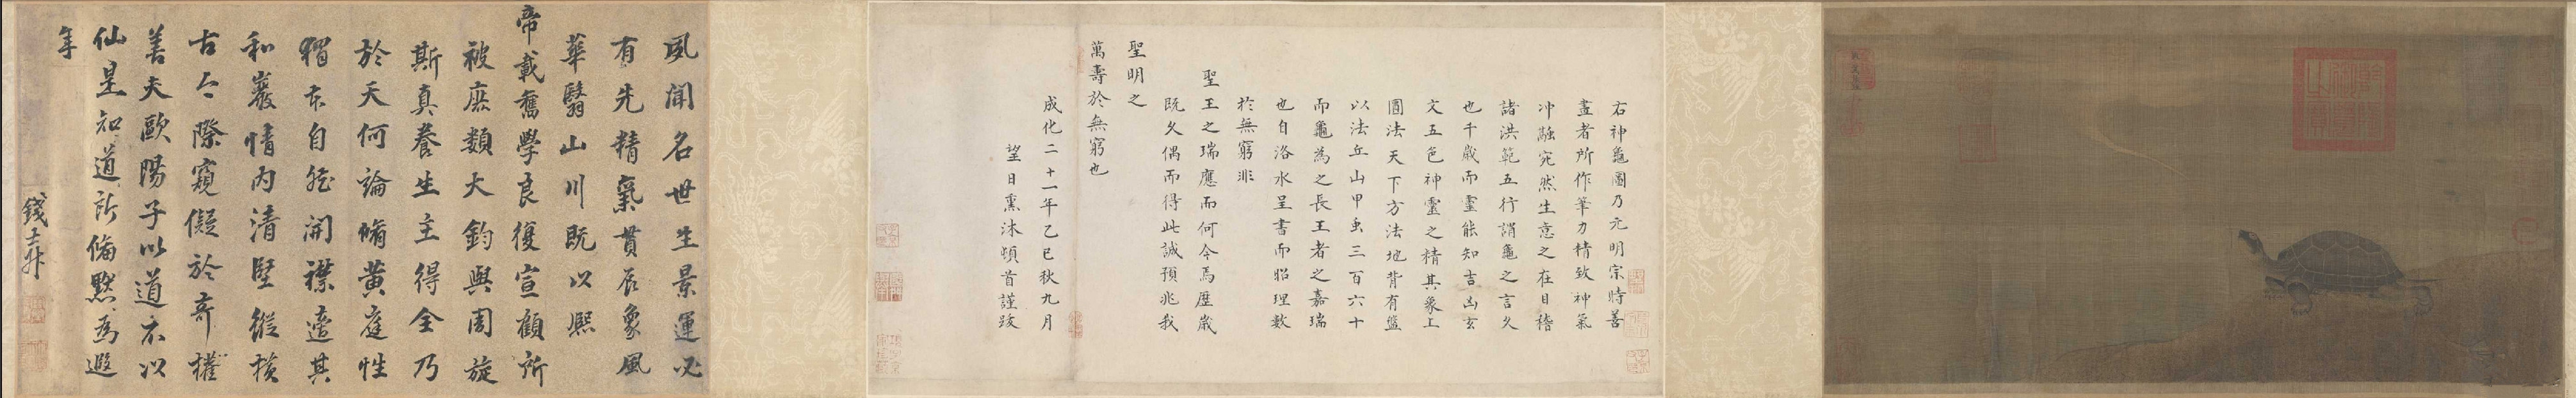 右神龜圖乃元明宗時善
畫者所作筆力精致神氣
冲融宛然生意之在目稽
諸洪範五行謂龜之言久
也千歲而靈能知吉凶玄
文五色神靈之精其象上
圓法天下方法地背有盤
以法丘山甲虫三百六十
而龜為之長王者之嘉瑞
也自洛水呈書而昭理數
於無窮非
聖王之瑞應而何今馬歷歲
既久偶而得此誠預兆我
聖明之
萬壽於無窮也
成化二十一年乙巳秋九月
望日熏沐頓首謹跋
夙聞名世生景運必
有先精氣貫辰象風
華翳山川既以熙
帝載舊學良復宣顧所
被庶類大鈞與周旋
斯真養生主得全乃
於天何論脩黃庭性
猶本自強開襟遠其
和巖情內清堅縱橫
古今際窺儗於奇
善夫歐陽子以道不以
仙是知道所脩默為遐
年
錢士升